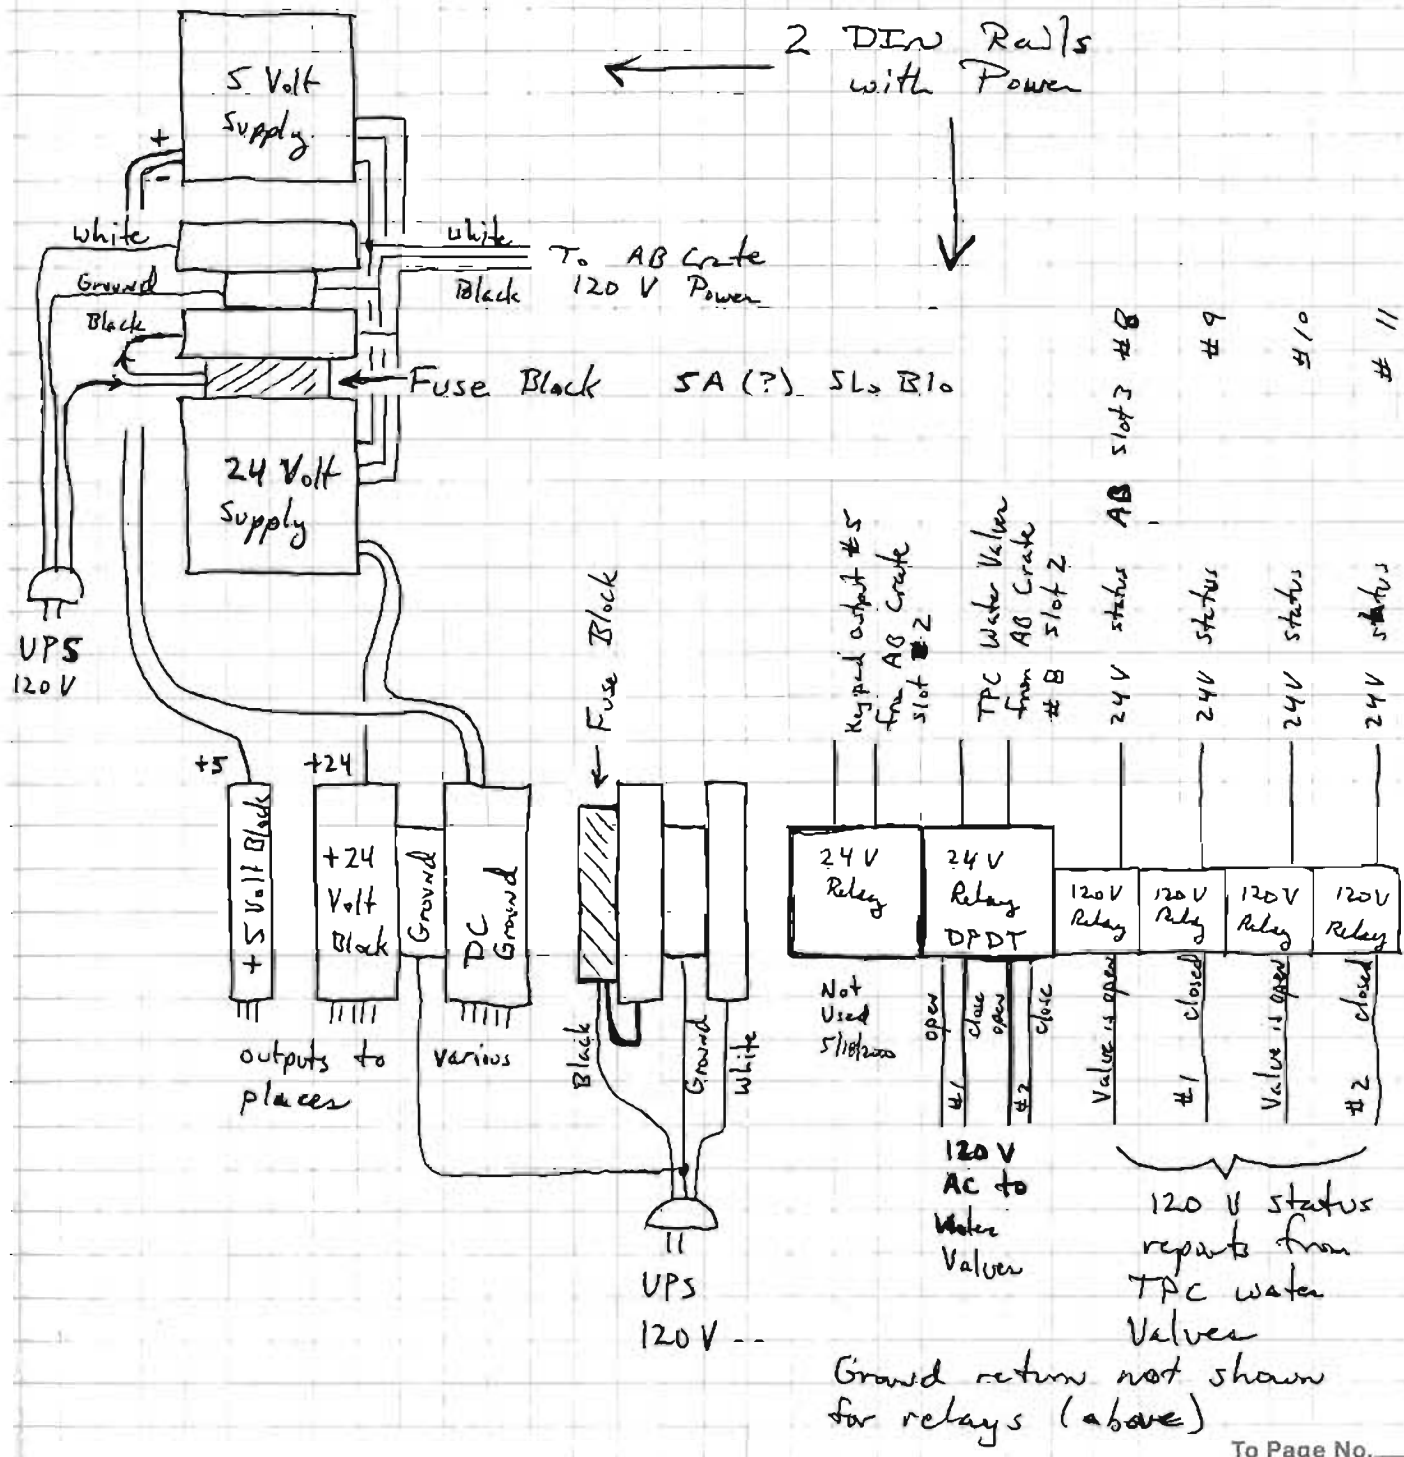 2 DIN Rails
with Power
5 Volt
Supply
+
-
White
Ground
Black
White
Black
To AB Crate
120 V Power
Fuse Block 5A (?) SLo Blo
24 Volt
Supply
UPS
120 V
+5
+24
+5 Volt Block
+24
Volt
Block
Ground
DC
Ground
outputs to various
places
Fuse Block
Black
Ground
White
UPS
120 V --
Keypad output #5
from AB Crate
slot #2
TPC Water Valves
from AB Crate
#8 slot 2
24V status AB slot 3 #8
24V status #9
24V status #10
24V status #11
24 V
Relay
24 V
Relay
DPDT
120V
Relay
120V
Relay
120V
Relay
120V
Relay
Not
Used
5/18/2000
open
close
open
close
#1
#2
Valve is open
#1 closed
Valve is open
#2 closed
120 V
AC to
Water
Valves
120 V status
reports from
TPC water
Valves
Ground return not shown
for relays (above)
To Page No.